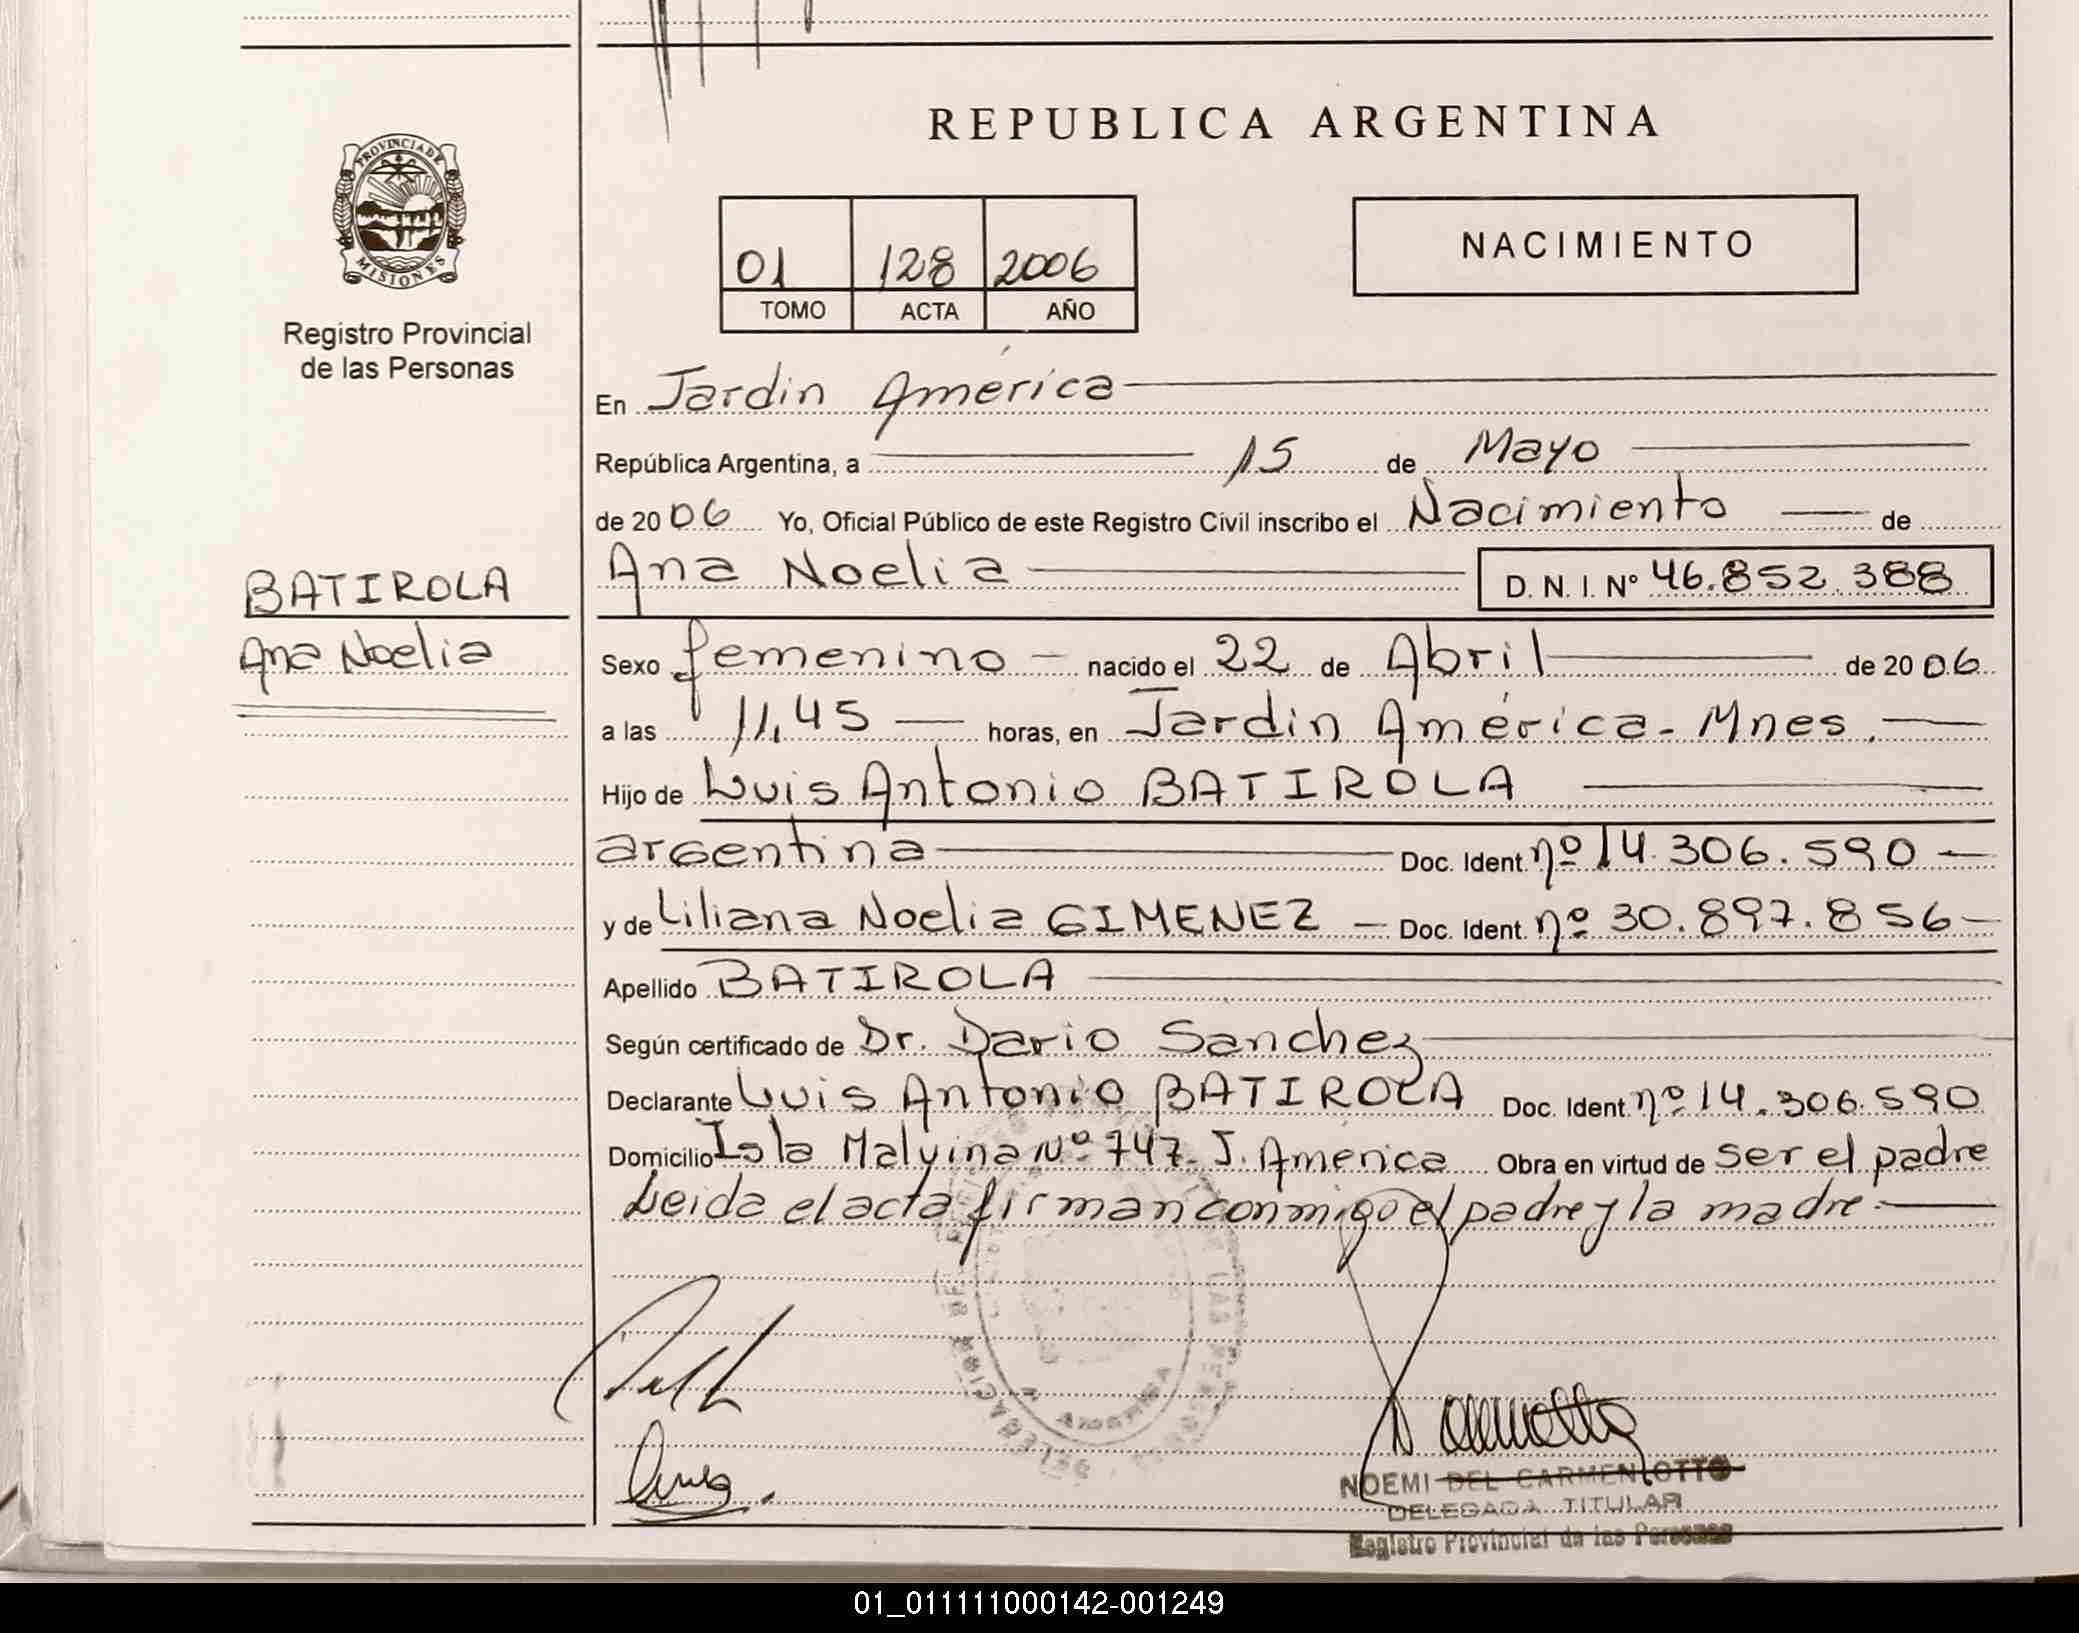 REPUBLICA ARGENTINA
PROVINCIA DE
MISIONES
Registro Provincial
de las Personas
NACIMIENTO
01 128 2006
TOMO ACTA AÑO
En Jardin América
República Argentina, a 15 de Mayo
de 2006 Yo, Oficial Público de este Registro Civil inscribo el Nacimiento de
BATIROLA
Ana Noelia
Ana Noelia D. N. I. Nº 46.852.388
Sexo femenino - nacido el 22 de Abril de 2006
a las 11,45 horas, en Jardin América - Mnes.
Hijo de Luis Antonio BATIROLA
argentina Doc. Ident. nº 14.306.590
y de Liliana Noelia GIMENEZ - Doc. Ident. nº 30.897.856
Apellido BATIROLA
Según certificado de Dr. Dario Sanchez
Declarante Luis Antonio BATIROLA Doc. Ident. nº 14.306.590
Domicilio Isla Malvina Nº 747 - J. América Obra en virtud de ser el padre
Leida el acta firman conmigo el padre y la madre.
NOEMI DEL CARMEN OTTO
DELEGADA TITULAR
Registro Provincial de las Personas
01_011111000142-001249